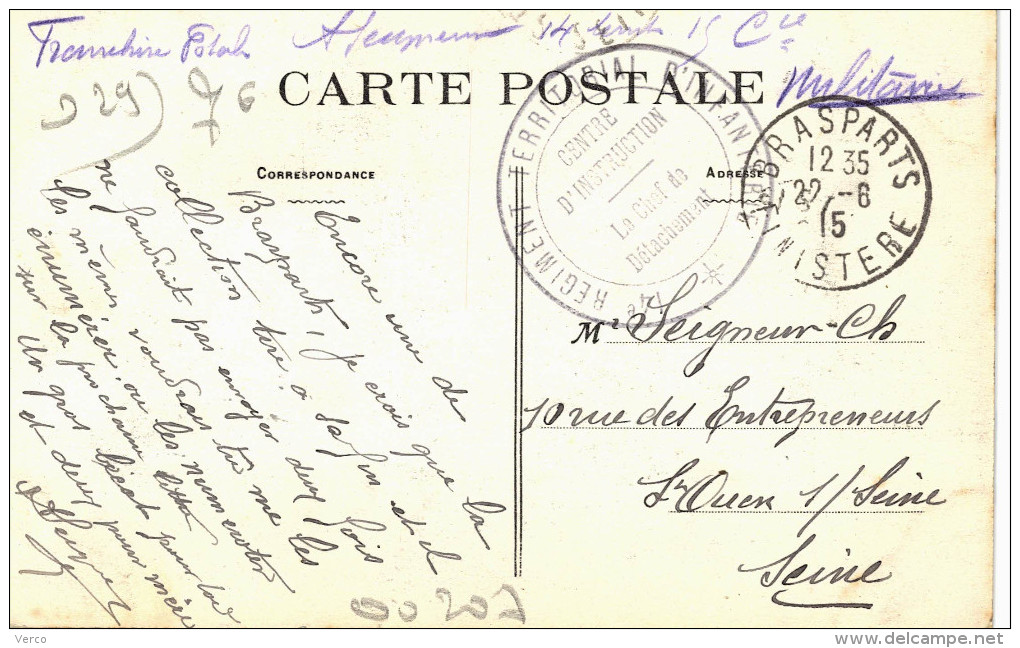 Franchise Postale
14 15 Cie
Militaire
29) 76
CARTE POSTALE
CORRESPONDANCE
ADRESSE
REGIMENT TERRITORIAL D'INFANTERIE
CENTRE
D'INSTRUCTION
Le Chef de
Détachement
BRASPARTS
12 35
22 - 6
15
FINISTERE
Encore une de
Brasparts, je crois que la
collection tire à sa fin et il
ne faudrait pas envoyer deux fois
les mêmes voudrais tu me les
énumérer ou les numéroter
sur la prochaine lettre
Un gros bécot pour toi
et deux pour
Mr Seigneur Ch
10 rue des Entrepreneurs
St Ouen s/ Seine
Seine
00207
Verco
delcampe.net